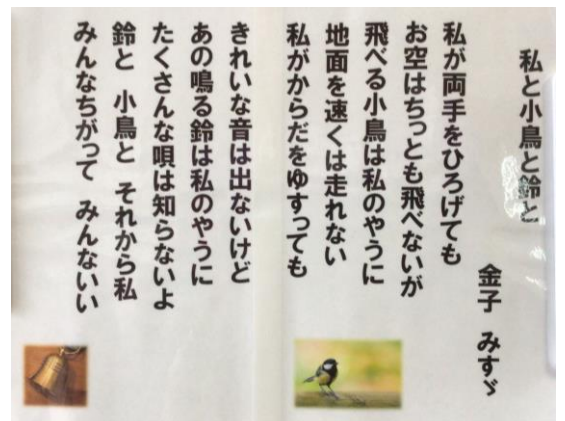 私と小鳥と鈴と
金子 みすゞ
私が両手をひろげても
お空はちっとも飛べないが
飛べる小鳥は私のやうに
地面を速くは走れない
私がからだをゆすっても
きれいな音は出ないけど
あの鳴る鈴は私のやうに
たくさんな唄は知らないよ
鈴と 小鳥と それから私
みんなちがって みんないい